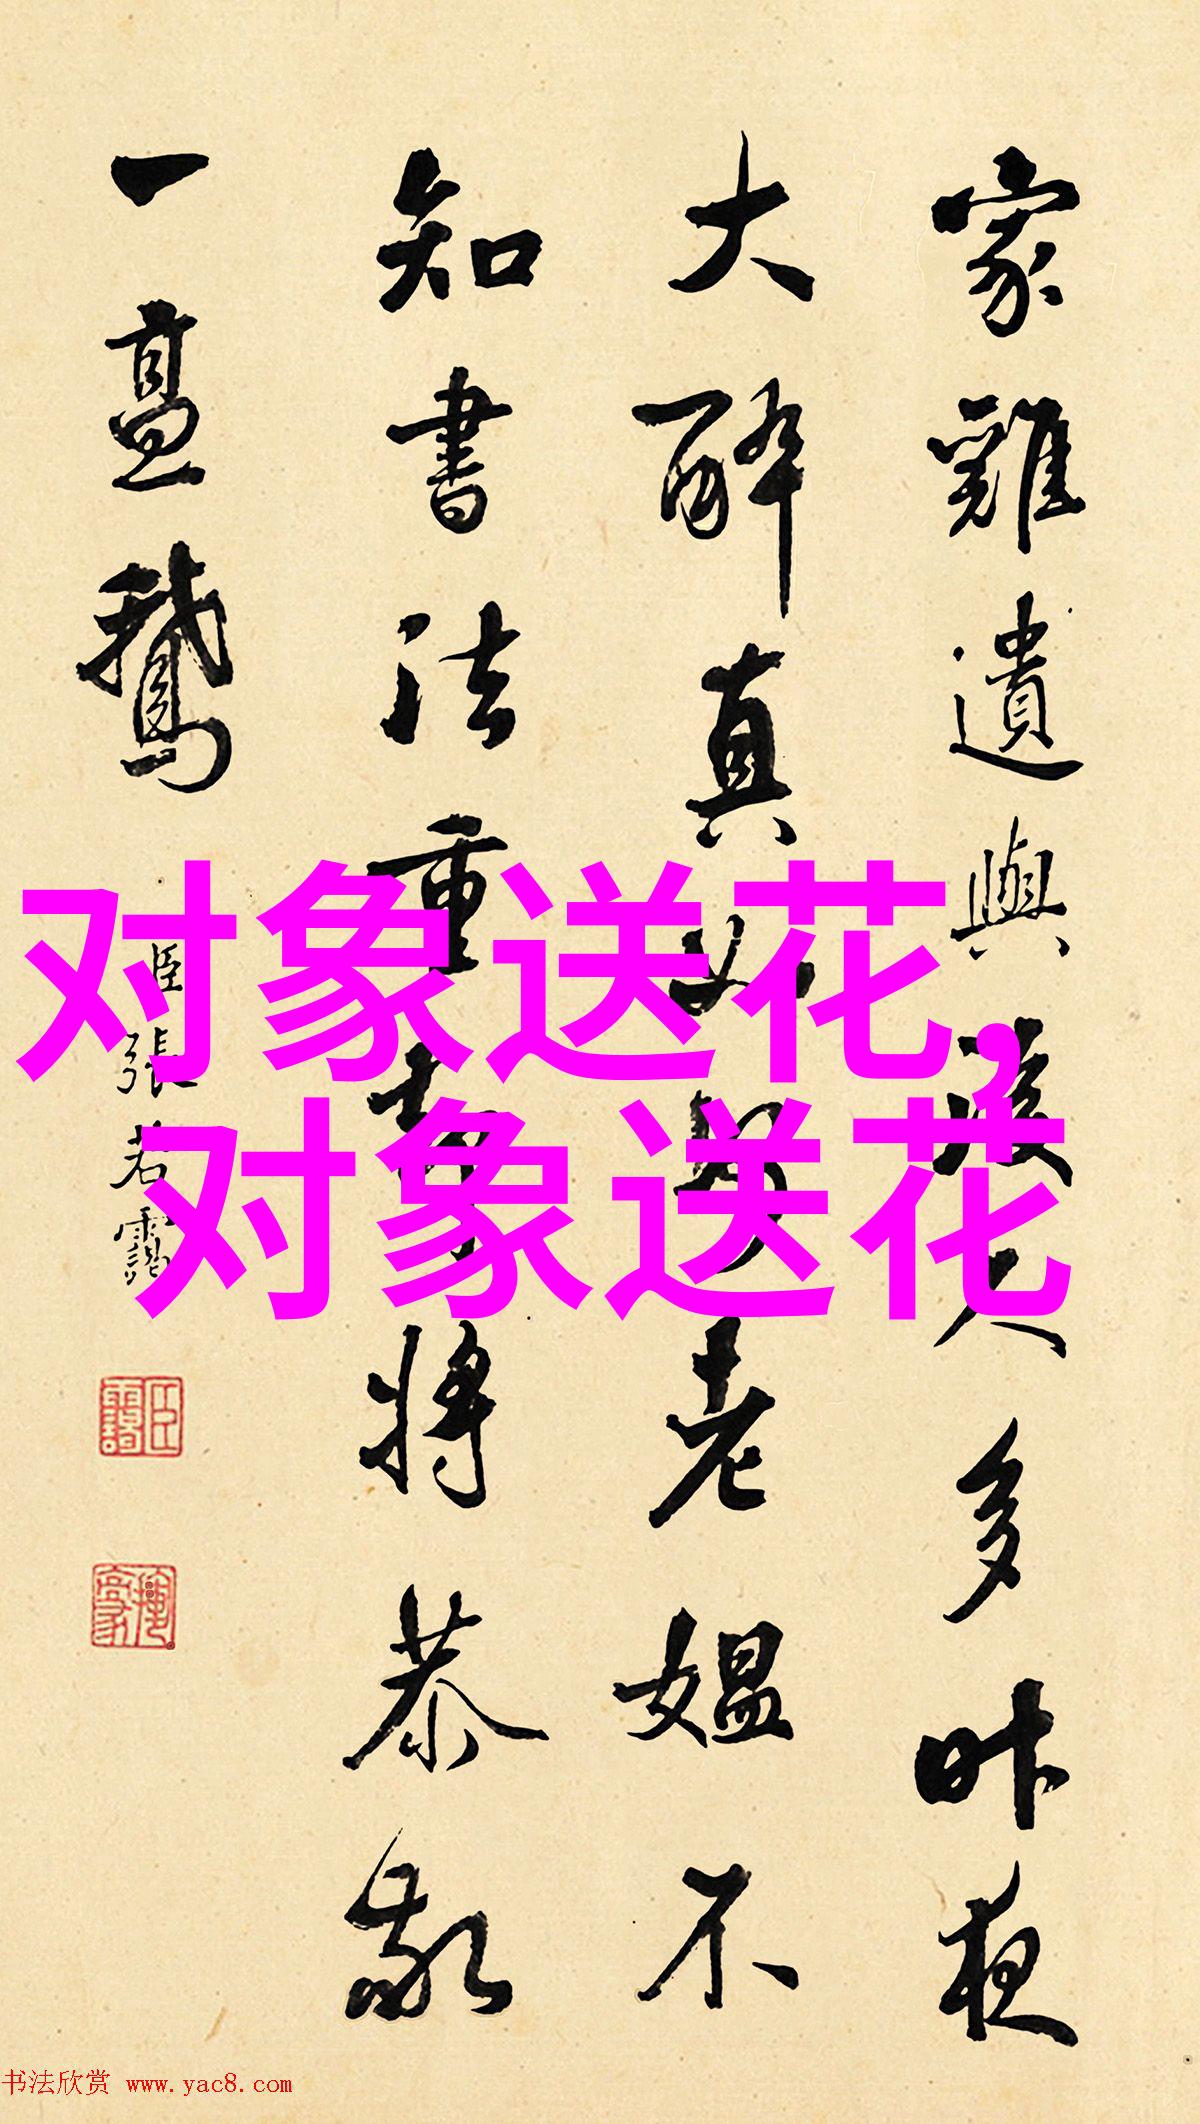 对象送花,
对象送花
家雞遺與後人多昨夜
大醉真老媼不
知書法重將恭敬
一鵝
臣張若靄
书法欣赏 www.yac8.com